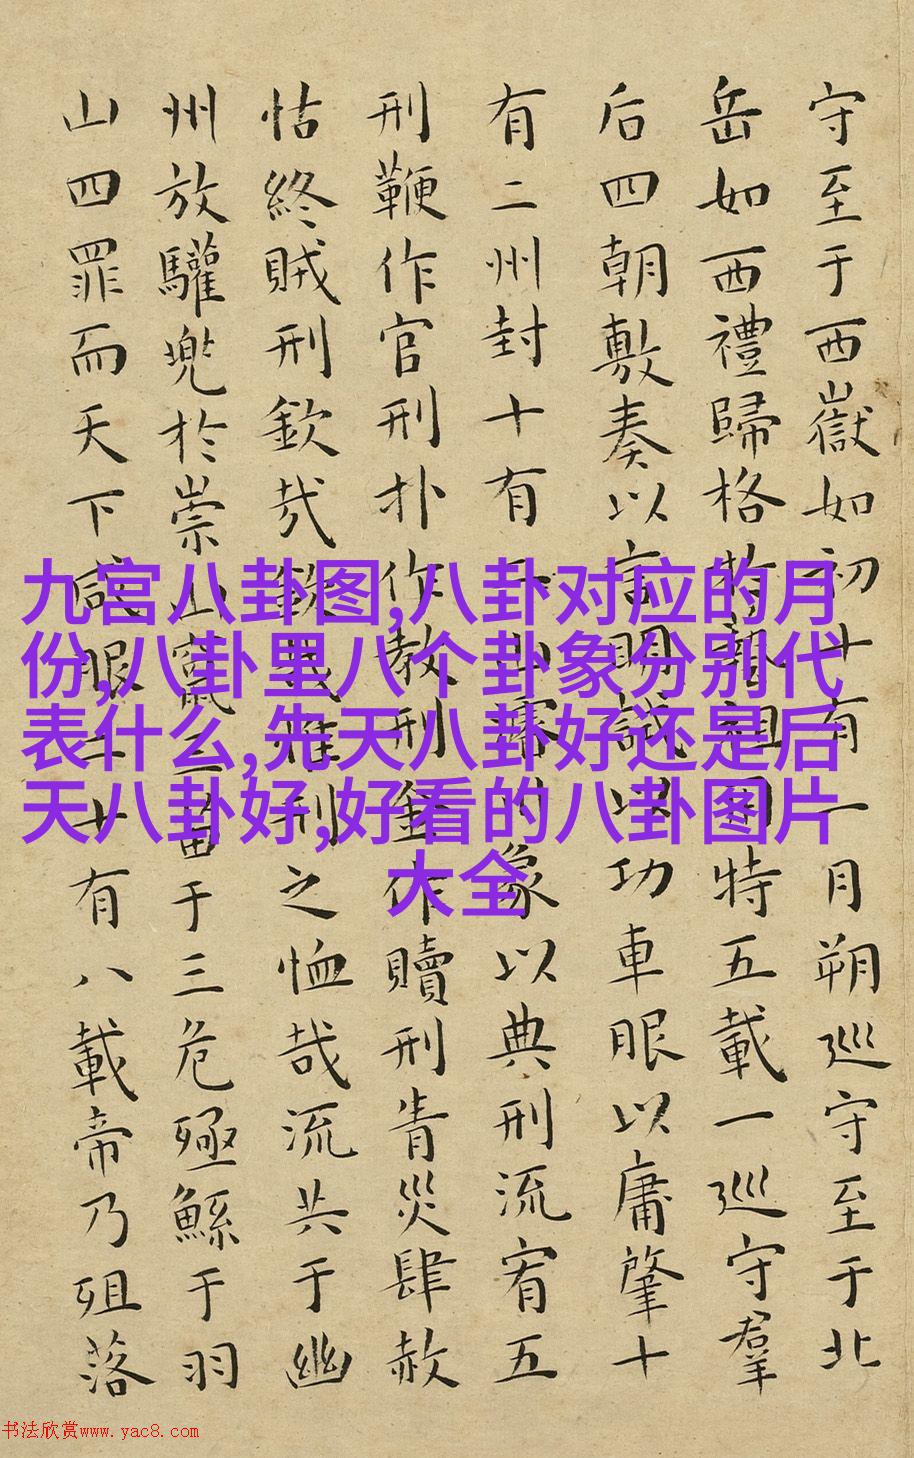 守至于西嶽如初十有一月朔巡守至于北
岳如西禮歸格於藝祖用特五載一巡守羣
后四朝敷奏以言明試以功車服以庸肇十
有二州封十有二山濬川象以典刑流宥五
刑鞭作官刑扑作教刑金作贖刑眚災肆赦
怙終賊刑欽哉欽哉惟刑之恤哉流共于幽
州放驩兜於崇山竄三苗于三危殛鯀于羽
山四罪而天下咸服二十有八載帝乃殂落
九宫八卦图,八卦对应的月
份,八卦里八个卦象分别代
表什么,先天八卦好还是后
天八卦好,好看的八卦图片
大全
书法欣赏www.yac8.com